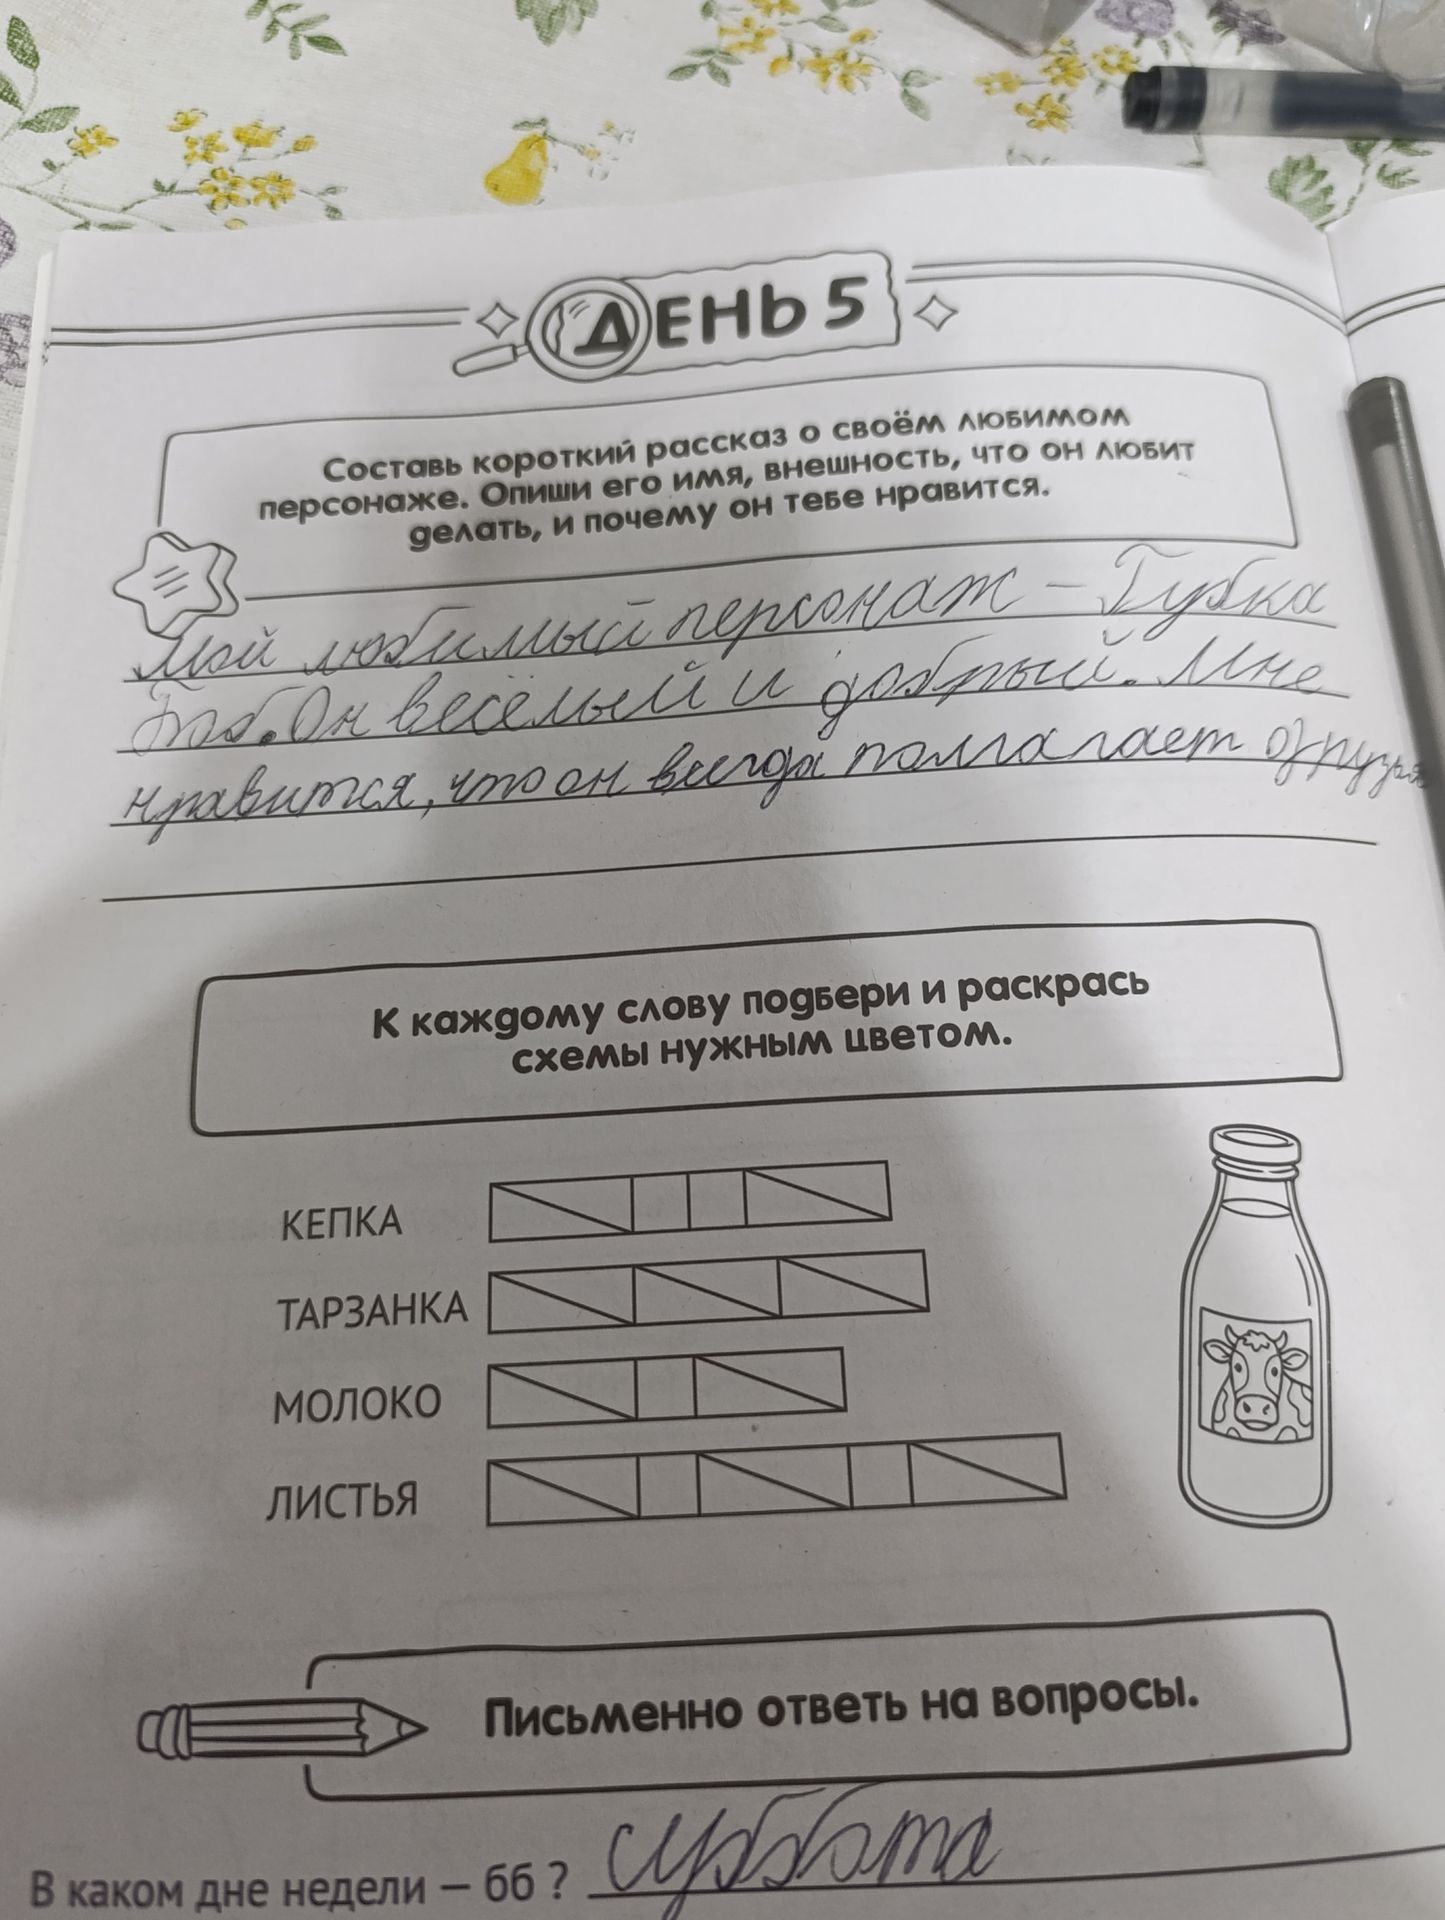 ДЕНЬ 5
Составь короткий рассказ о своём любимом
персонаже. Опиши его имя, внешность, что он любит
делать, и почему он тебе нравится.
Мой любимый персонаж – Губка
Боб. Он весёлый и добрый. Мне
нравится, что он всегда помагает друзья
К каждому слову подбери и раскрась
схемы нужным цветом.
КЕПКА
ТАРЗАНКА
МОЛОКО
ЛИСТЬЯ
Письменно ответь на вопросы.
В каком дне недели – бб ? суббота